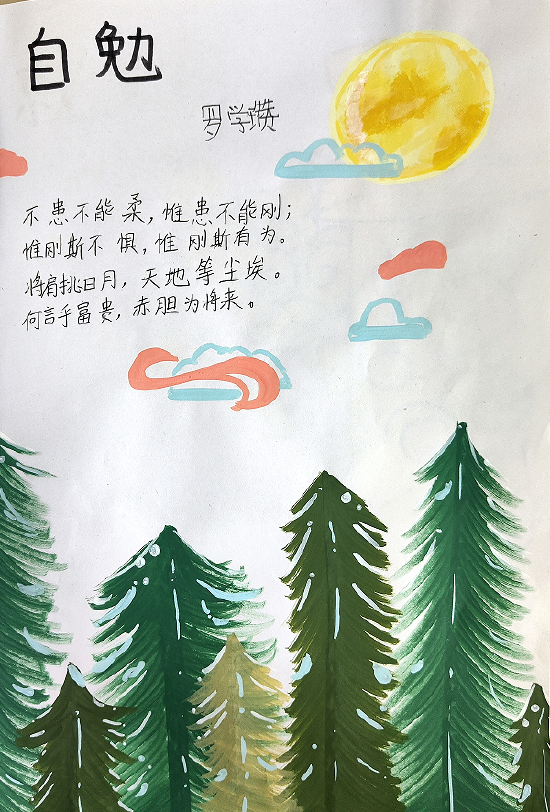 自勉
罗学瓒
不患不能柔，惟患不能刚；
惟刚斯不惧，惟刚斯有为。
将肩挑日月，天地等尘埃。
何言乎富贵，赤胆为将来。